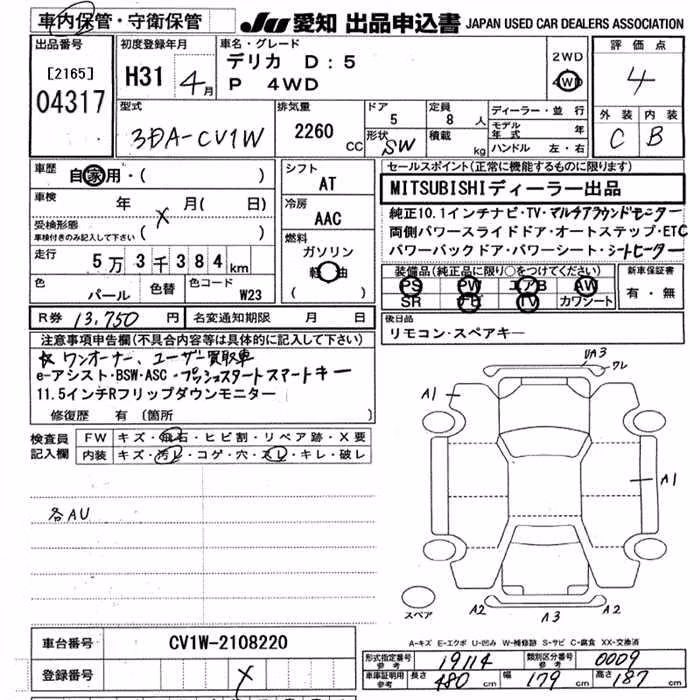 車内保管・守衛保管 JU愛知 出品申込書 JAPAN USED CAR DEALERS ASSOCIATION
出品番号
[2165]
04317
初度登録年月
H31 4月
車名・グレード
デリカ D:5
P 4WD
2WD
4WD
評価点
4
外装 内装
C B
型式
3DA-CV1W
排気量
2260 CC
ドア
5
定員
8 人
形状
SW
積載
kg
ディーラー・並行
モデル年式 年
ハンドル 左・右
車歴
自家用・( )
車検 年 月( 日)
受検形態
車検付きのみ記入して下さい ( )
X
走行 5万3千384km
色 パール
色替
色コード W23
シフト
AT
冷房
AAC
燃料
ガソリン
軽油
( )
セールスポイント(正常に機能するものに限ります)
MITSUBISHIディーラー出品
純正10.1インチナビ・TV・マルチアラウンドモニター
両側パワースライドドア・オートステップ・ETC
パワーバックドア・パワーシート・シートヒーター
装備品(純正品に限り○をつけてください)
PS PW エアB AW
SR ナビ TV カワシート
新車保証書
有・無
後日品
リモコン・スペアキー
R券 13,750 円
名変通知期限 月 日
注意事項申告欄(不具合内容等は具体的に記入して下さい)
ワンオーナー、ユーザー買取車
e-アシスト・BSW・ASC・プッシュスタートスマートキー
11.5インチRフリップダウンモニター
修復歴 有(箇所
検査員
記入欄
FW キズ・飛石・ヒビ割・リペア跡・X要
内装 キズ・汚レ・コゲ・穴・スレ・キレ・破レ
各AU
UA3
ワレ
A1
A1
A2
A3
A2
スペア
A-キズ E-エクボ U-凹み W-補修跡 S-サビ C-腐食 XX-交換済
車台番号 CV1W-2108220
登録番号 X
形式指定番号 参考 19114
類別区分番号 参考 0009
車庫証明用 参考 長さ 480 cm 幅 179 cm 高さ 187 cm